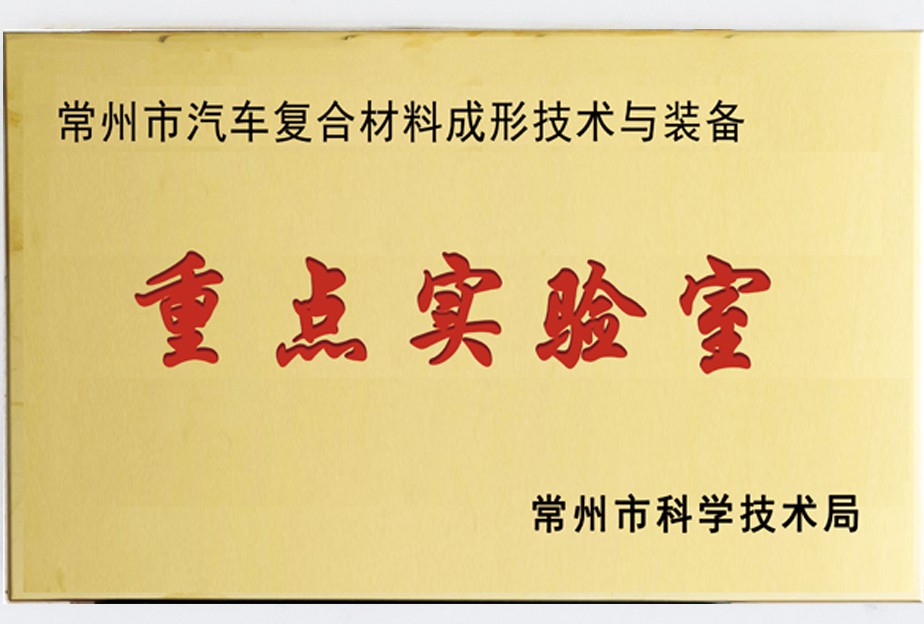 常州市汽车复合材料成形技术与装备
重点实验室
常州市科学技术局